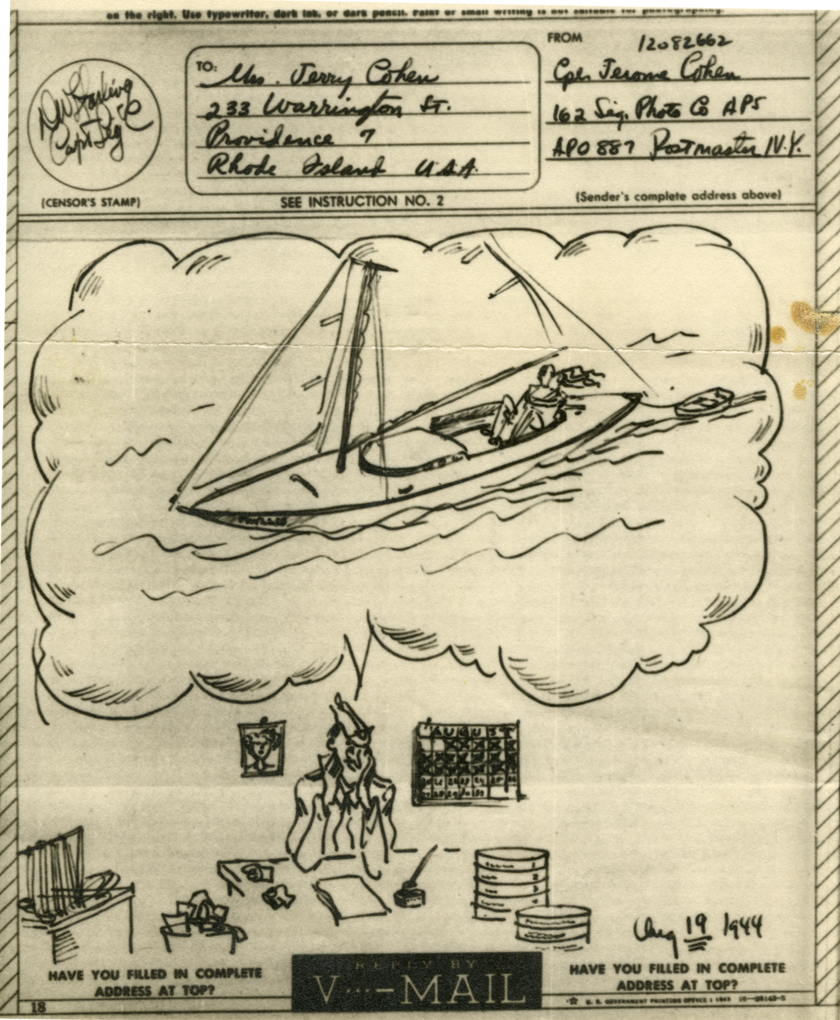 on the right. Use typewriter, dark ink, or dark pencil. Faint or small writing is not suitable for photographing.
TO: Mrs. Jerry Cohen
233 Warrington St.
Providence 7
Rhode Island USA
FROM
12082662
Cpl. Jerome Cohen
162 Sig. Photo Co APS
APO 887 Postmaster N.Y.
Capt Sig C
(CENSOR'S STAMP)
SEE INSTRUCTION NO. 2
(Sender's complete address above)
AUGUST
Aug 19 1944
HAVE YOU FILLED IN COMPLETE
ADDRESS AT TOP?
REPLY BY
V···—MAIL
HAVE YOU FILLED IN COMPLETE
ADDRESS AT TOP?
18
☆ U. S. GOVERNMENT PRINTING OFFICE : 1943